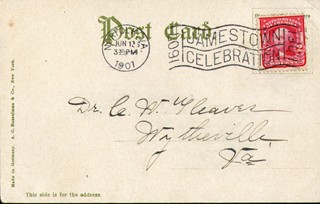 Post Card.
JUN 12
3 PM
1907
1607
JAMESTOWN
CELEBRAT
Dr. C. W. Cleaver
Wytheville
Va
Made in Germany. A. C. Bosselman & Co., New York.
This side is for the address.